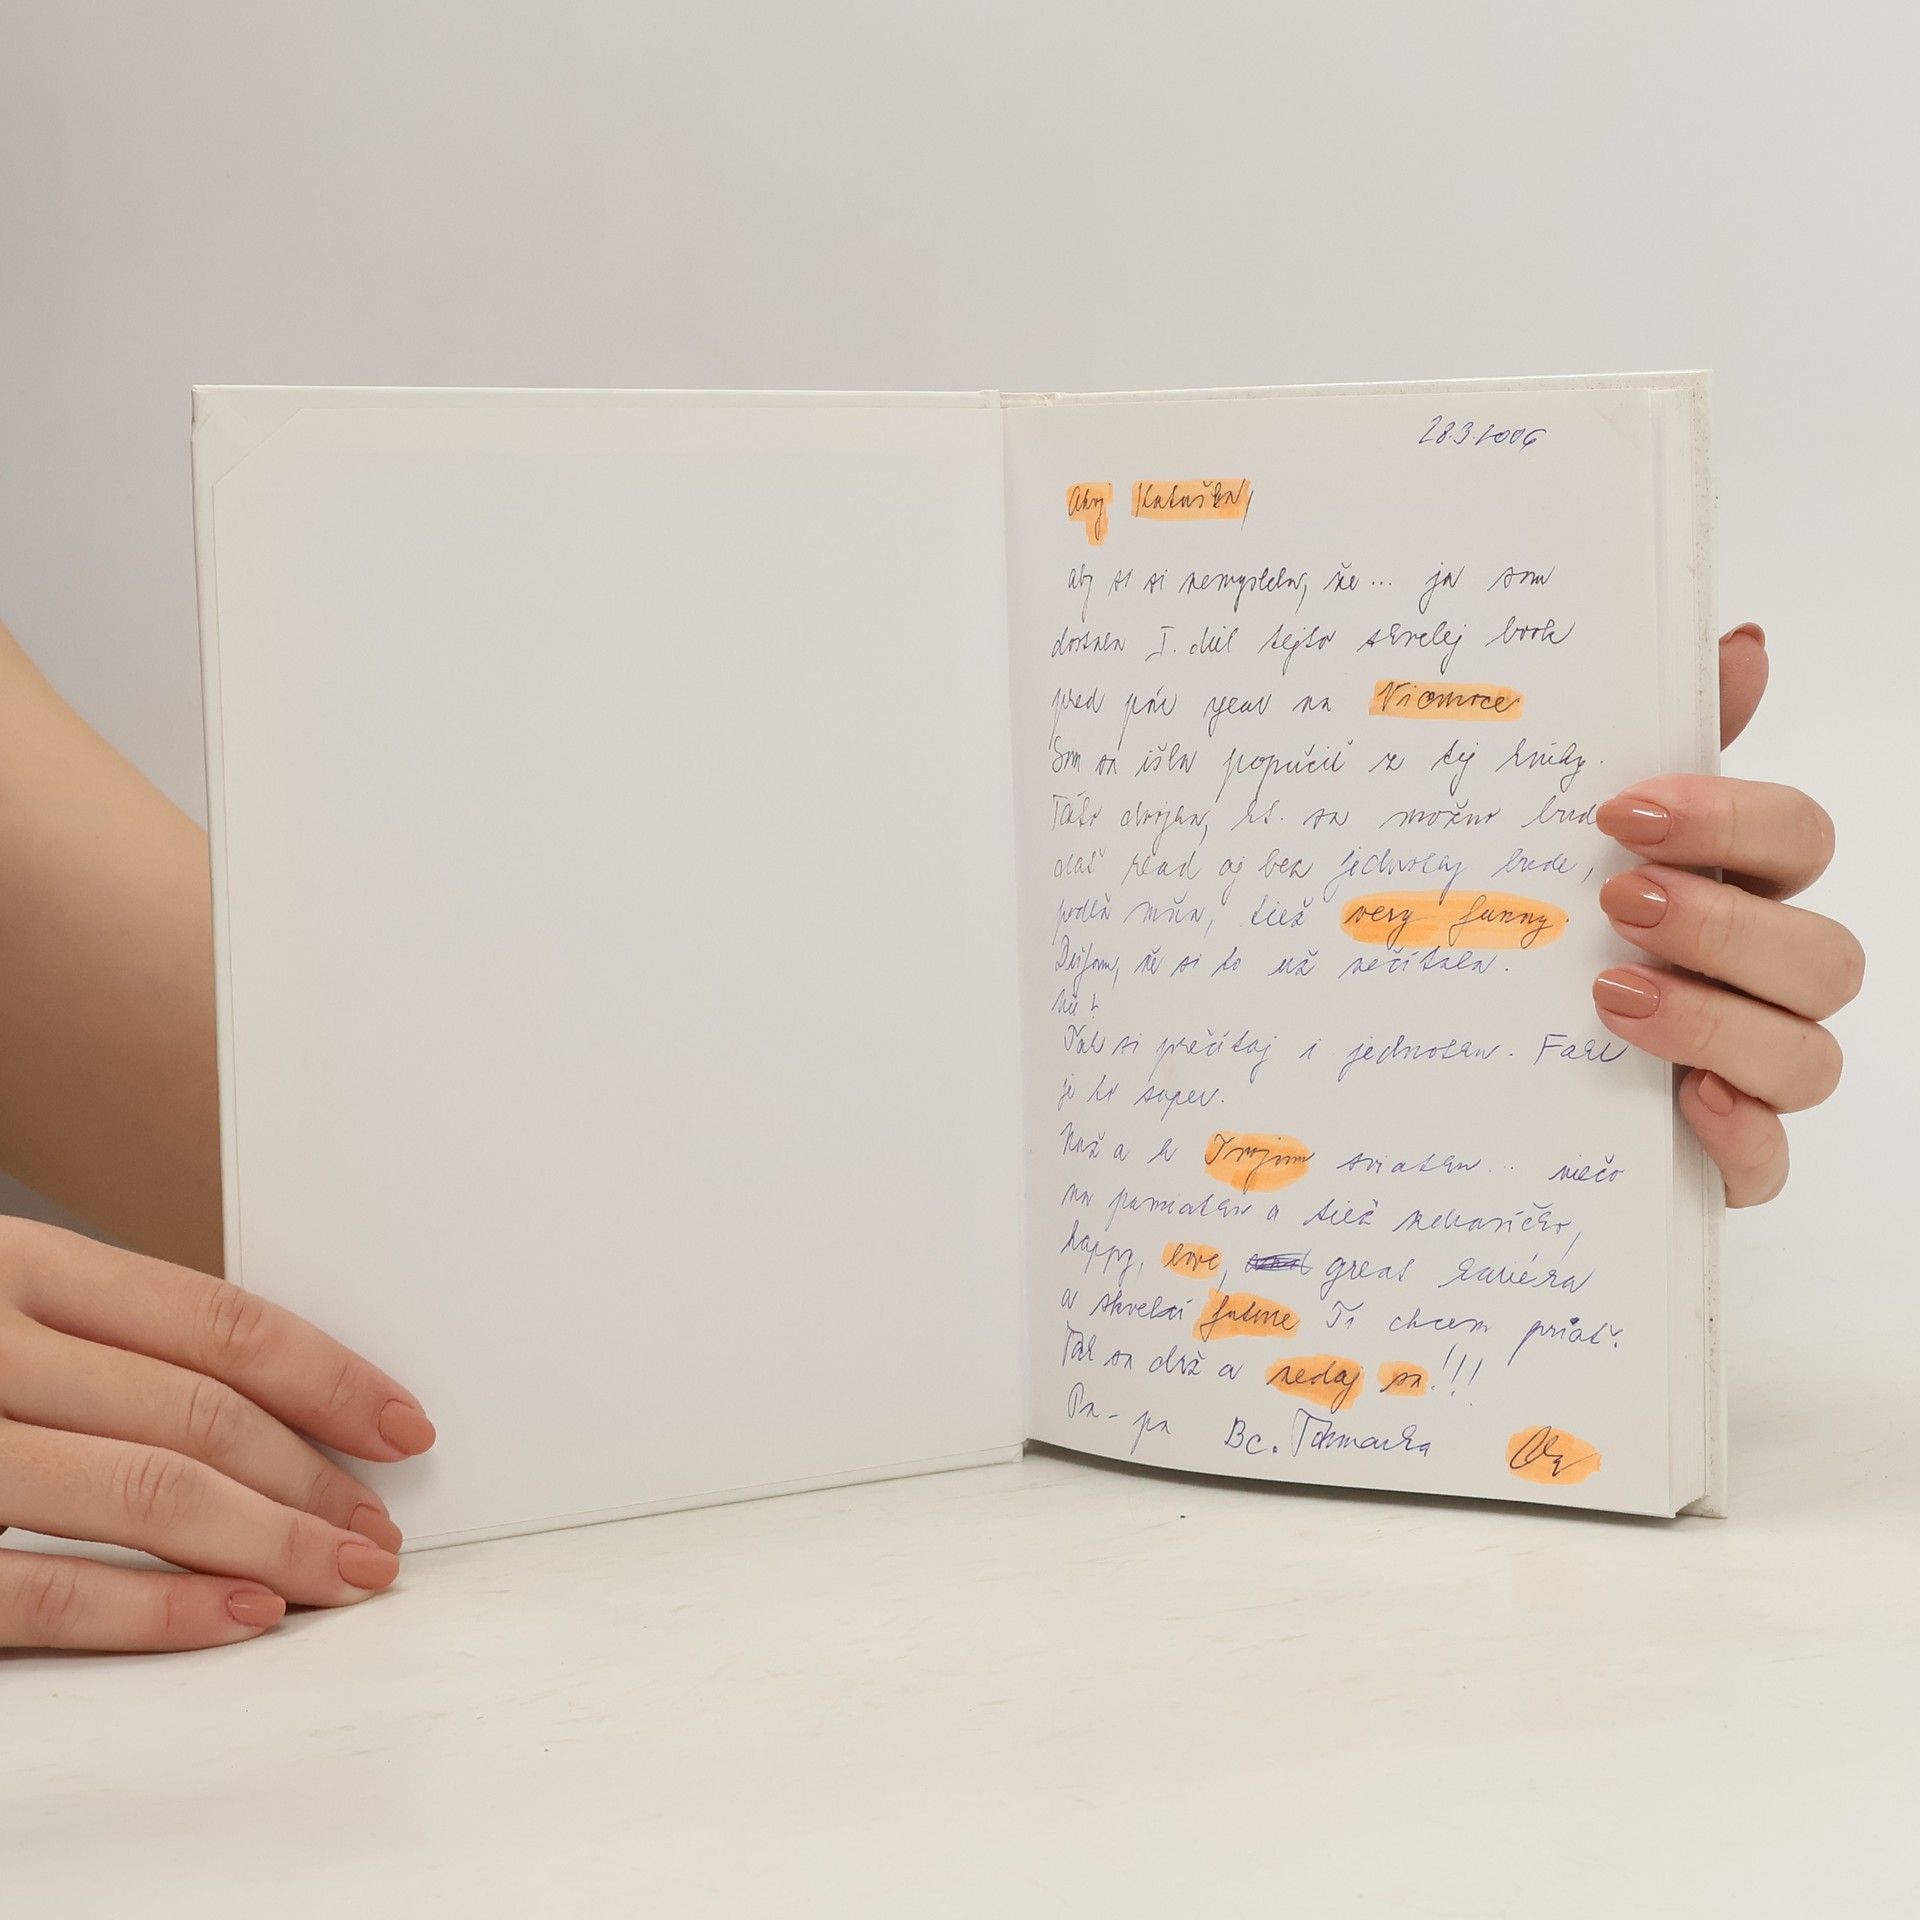 28.3.2006
Ahoj Katuška,
aby si si nemyslela, že... ja som
dostala I. diel tejto skvelej book
pred pár year na Vianoce
Som sa išla popučiť z tej knihy.
Táto dvojka, kt. sa možno bud
daš read aj bez jednotky bude,
podľa mňa, tiež very funny.
Dúfam, že si to už nečítala.
Nie?
Tak si prečítaj i jednotku. Fakt
je to super.
Nuž a k Tvojmu sviatku... niečo
na pamiatku a tiež
happy, love, great kariéra
a skvelú future Ti chcem priať.
Tak sa drž a nedaj sa!!!
Pa-pa Bc.